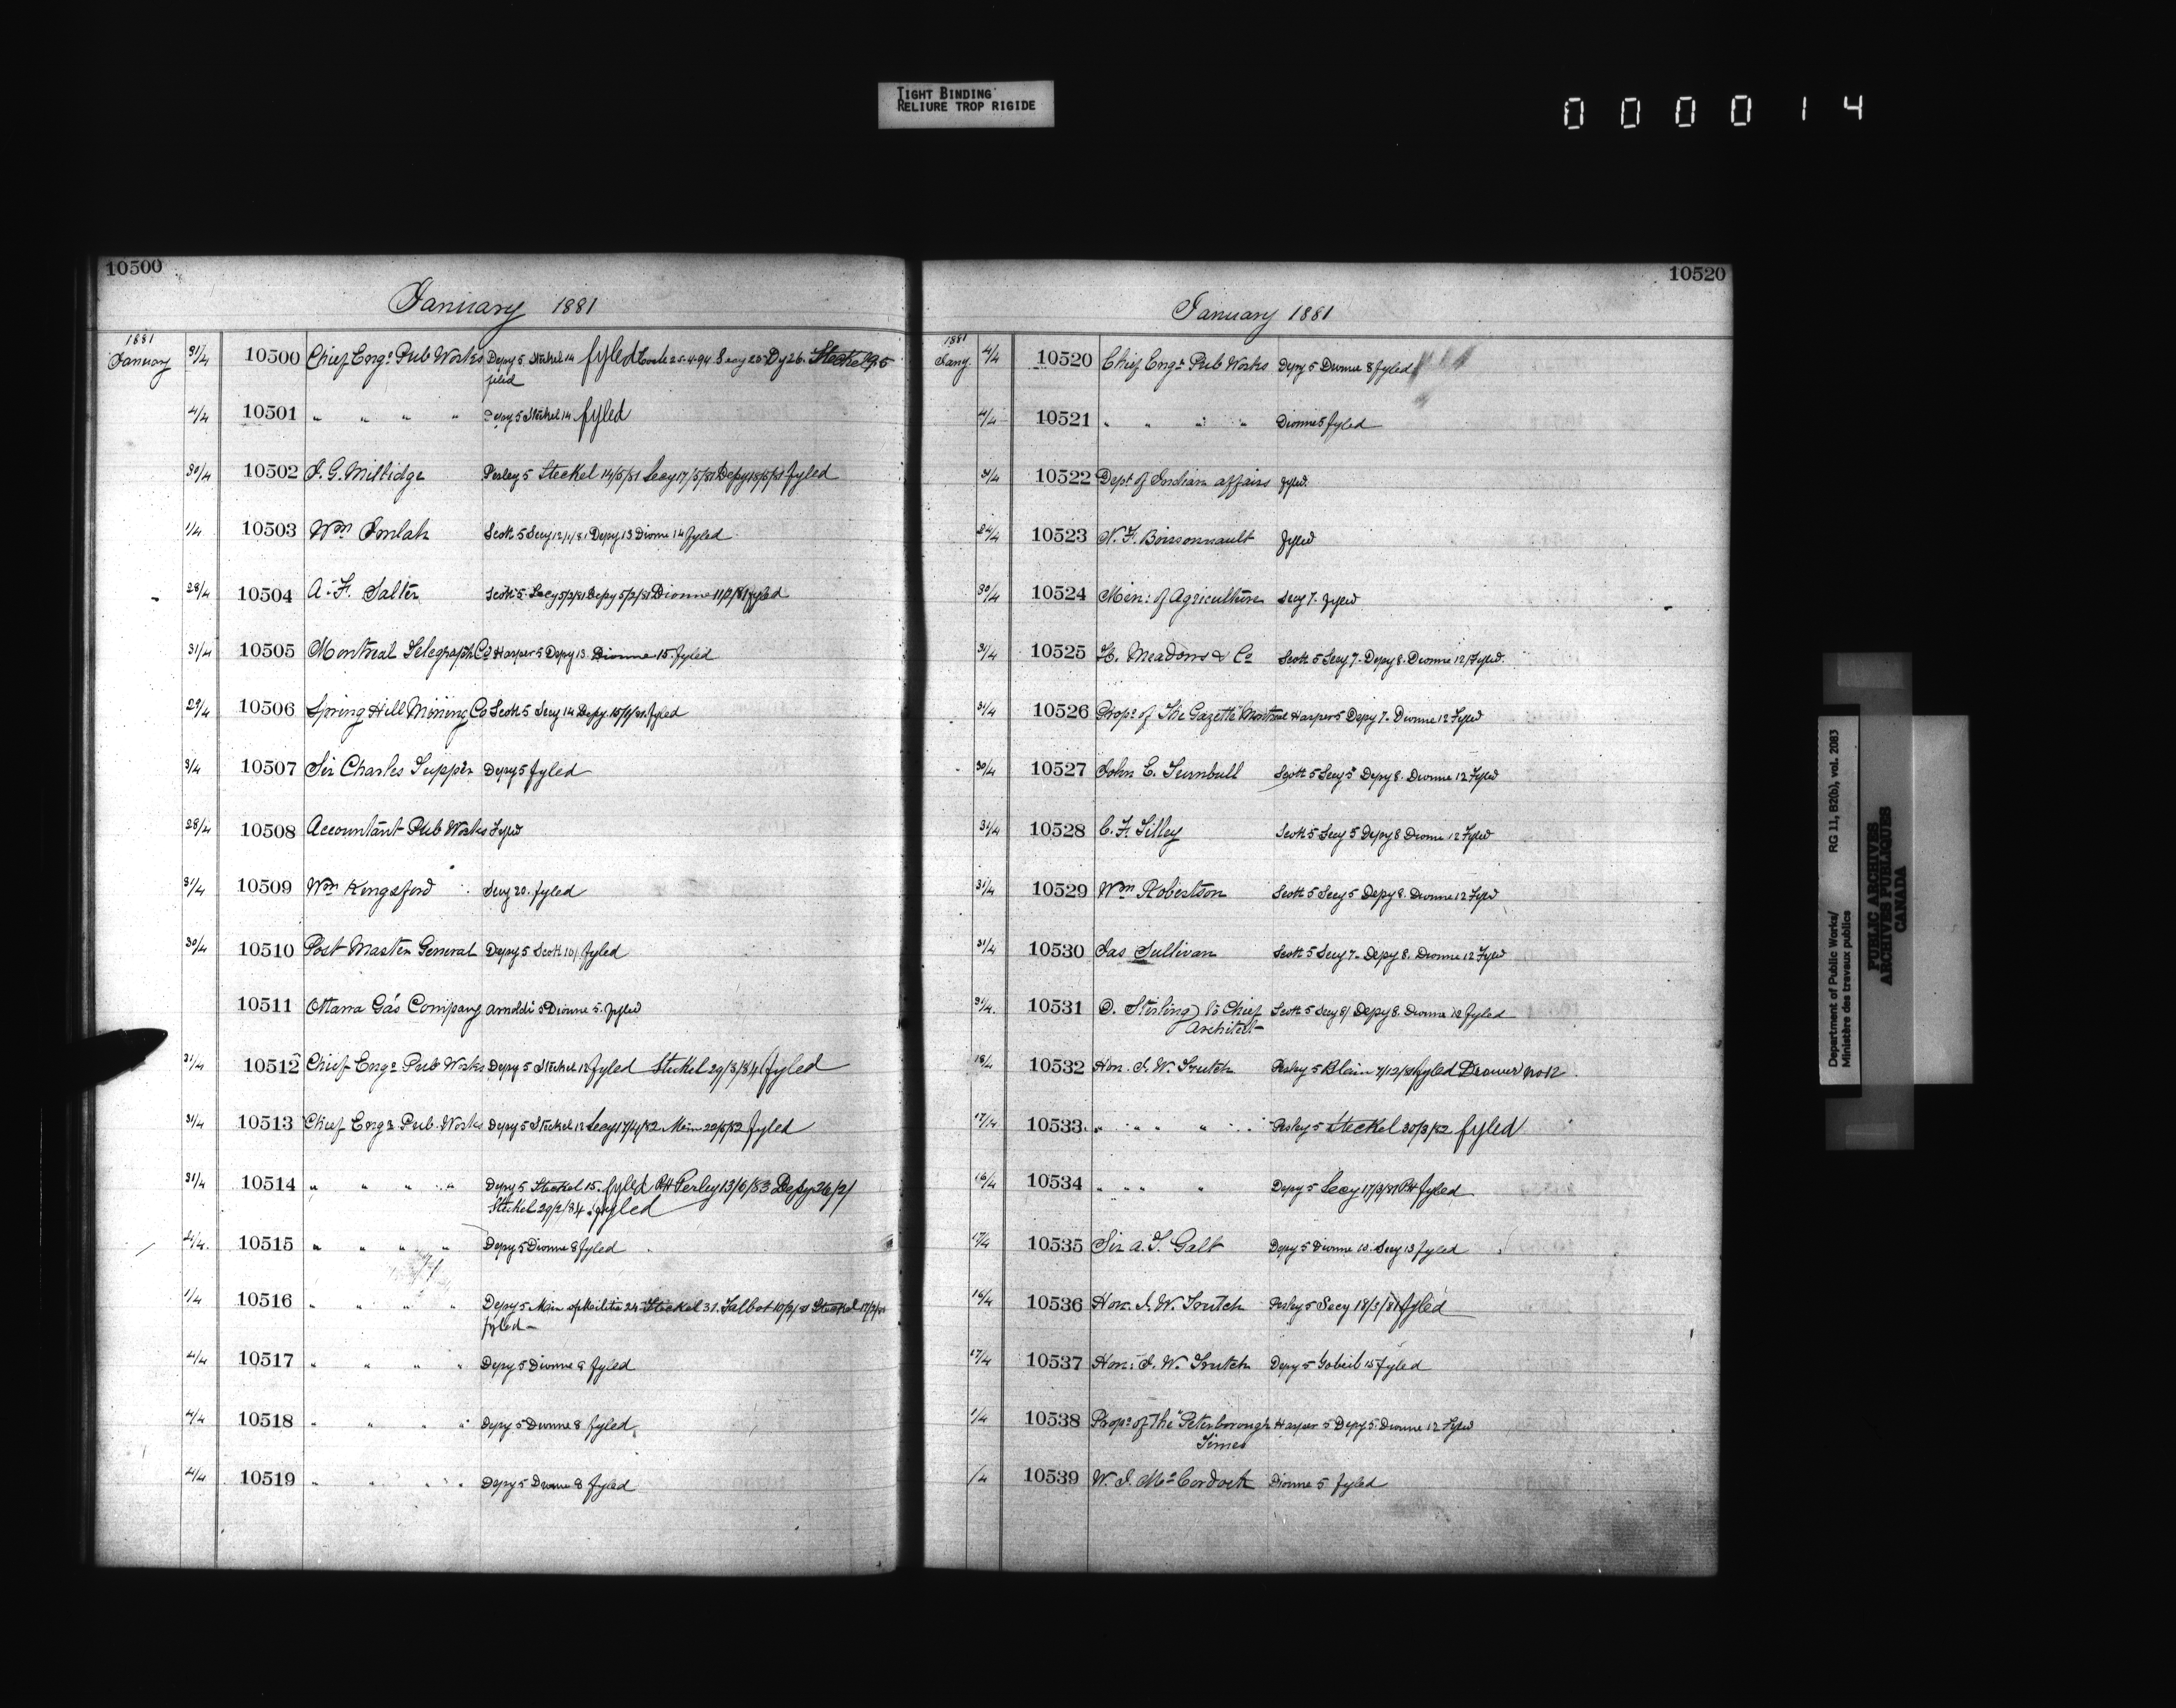 TIGHT BINDING
RELIURE TROP RIGIDE
000014
10500
January 1881
1881
January 31/4 10500 Chief Engr Pub Works Depy 5 Steckel 14 fyled 25-4-94 Secy 25 Dy 26. Steckel
fyled
4/4 10501 " " " " Depy 5 Steckel 14 fyled
30/4 10502 J. G. Millidge Perley 5 Steckel 14/5/81 Secy 17/5/81 Depy 18/5/81 fyled
1/4 10503 Wm Imlah Scott 5 Secy 12/1/81 Depy 13 Dionne 14 fyled
28/4 10504 A. F. Salter Scott 5 Secy 5/2/81 Depy 5/2/81 Dionne 11/2/81 fyled
31/4 10505 Montreal Telegraph Co Harper 5 Depy 13 Dionne 15 fyled
29/4 10506 Spring Hill Mining Co Scott 5 Secy 14 Depy 15/1/81 fyled
3/4 10507 Sir Charles Tupper Depy 5 fyled
28/4 10508 Accountant Pub Works Fyled
31/4 10509 Wm Kingsford Secy 20. fyled
30/4 10510 Post Master General Depy 5 Scott 10/ fyled
10511 Ottawa Gas Company Arnoldi 5 Dionne 5. fyled
31/4 10512 Chief Engr Pub Works Depy 5 Steckel 12 fyled Steckel 29/3/84 fyled
31/4 10513 Chief Engr Pub. Works Depy 5 Steckel 12 Secy 17/4/82 Min 22/5/82 fyled
31/4 10514 " " " " Depy 5 Steckel 15. fyled Perley 13/6/83 Depy 26/2/
Steckel 29/2/84. fyled
4/4 10515 " " " " Depy 5 Dionne 8 fyled
1/4 10516 " " " " Depy 5 Min of Militia 24 Steckel 31. Talbot 10/2/81 Steckel
fyled
4/4 10517 " " " " Depy 5 Dionne 9 fyled
4/4 10518 " " " " Depy 5 Dionne 8 fyled
4/4 10519 " " " " Depy 5 Dionne 8 fyled
10520
January 1881
1881
Jany. 4/4 10520 Chief Engr Pub Works Depy 5 Dionne 8 fyled
4/4 10521 " " " " Dionne 5 fyled
31/4 10522 Dept of Indian affairs fyled.
24/4 10523 N. F. Boissonnault fyled
30/4 10524 Min: of Agriculture Secy 7. fyled
31/4 10525 H. Meadows & Co Scott 5 Secy 7. Depy 8. Dionne 12/ Fyled.
31/4 10526 Propr of "The Gazette" Montreal Harper 5 Depy 7. Dionne 12 Fyled
30/4 10527 John E. Turnbull Scott 5 Secy 5 Depy 8. Dionne 12 Fyled
31/4 10528 C. F. Tilley Scott 5 Secy 5 Depy 8 Dionne 12 Fyled
31/4 10529 Wm Robertson Scott 5 Secy 5 Depy 8. Dionne 12 Fyled
31/4 10530 Jas Sullivan Scott 5 Secy 7. Depy 8. Dionne 12 Fyled
31/4. 10531 D. Stirling) to Chief Scott 5 Secy 8/ Depy 8. Dionne 12 fyled
Architect
18/4 10532 Hon. J. W. Trutch Perley 5 Blain 7/12/81 fyled Drawer No 12
17/4 10533 " " " " Perley 5 Steckel 30/3/82 fyled
16/4 10534 " " " " Depy 5 Secy 17/3/81 fyled
17/4 10535 Sir A. T. Galt Depy 5 Dionne 10. Secy 13 fyled
16/4 10536 Hon. J. W. Trutch Perley 5 Secy 18/3/81 fyled
17/4 10537 Hon: J. W. Trutch Depy 5 Gobeil 15 fyled
1/4 10538 Propr of "The Peterborough Harper 5 Depy 5. Dionne 12 Fyled
Times
/4 10539 W. J. McCordock Dionne 5 fyled
Department of Public Works/ RG 11, B2(b), vol. 2083
Ministère des travaux publics
PUBLIC ARCHIVES
ARCHIVES PUBLIQUES
CANADA